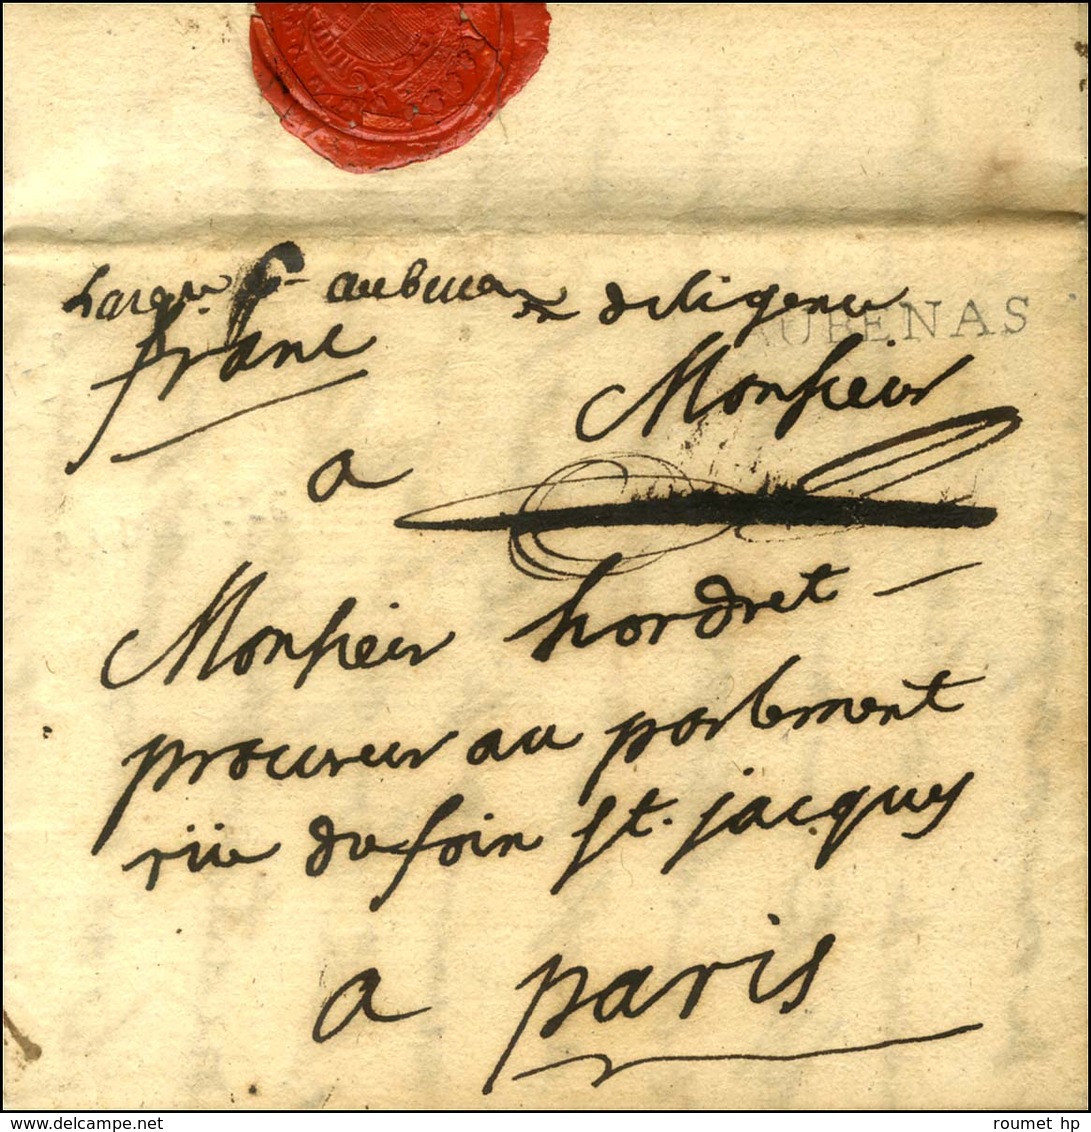 au bureau diligence
AUBENAS
franc
a Monsieur
Monsieur hordret
procureur au parlement
rüe du foin St. jacques
a paris
roumet hp